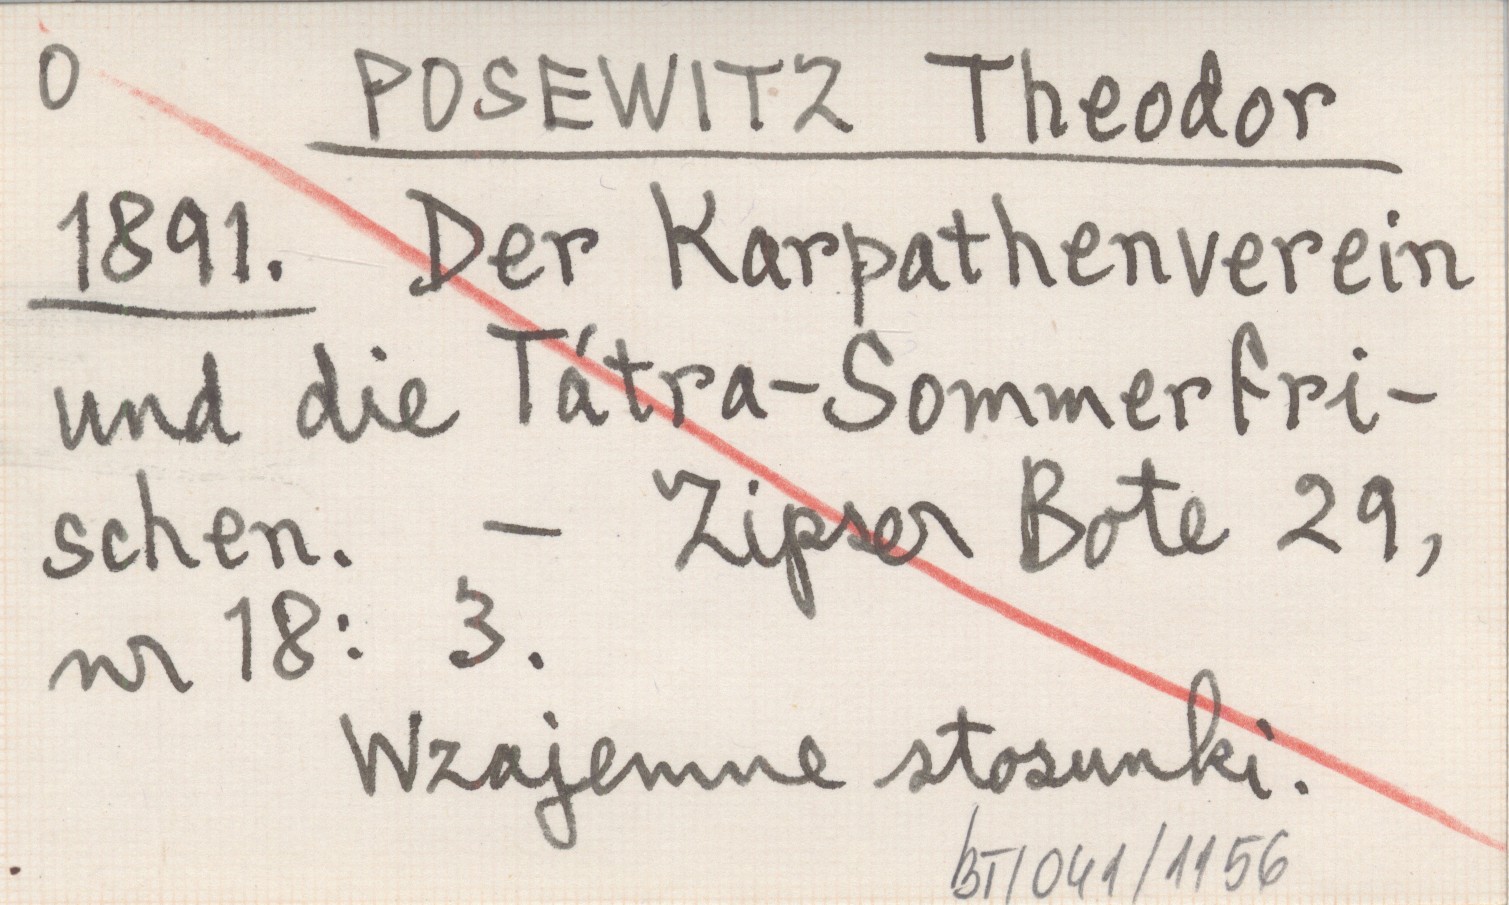 0 POSEWITZ Theodor
1891. Der Karpathenverein
und die Tátra-Sommerfri-
schen. – Zipser Bote 29,
nr 18: 3.
Wzajemne stosunki.
BT/041/1156